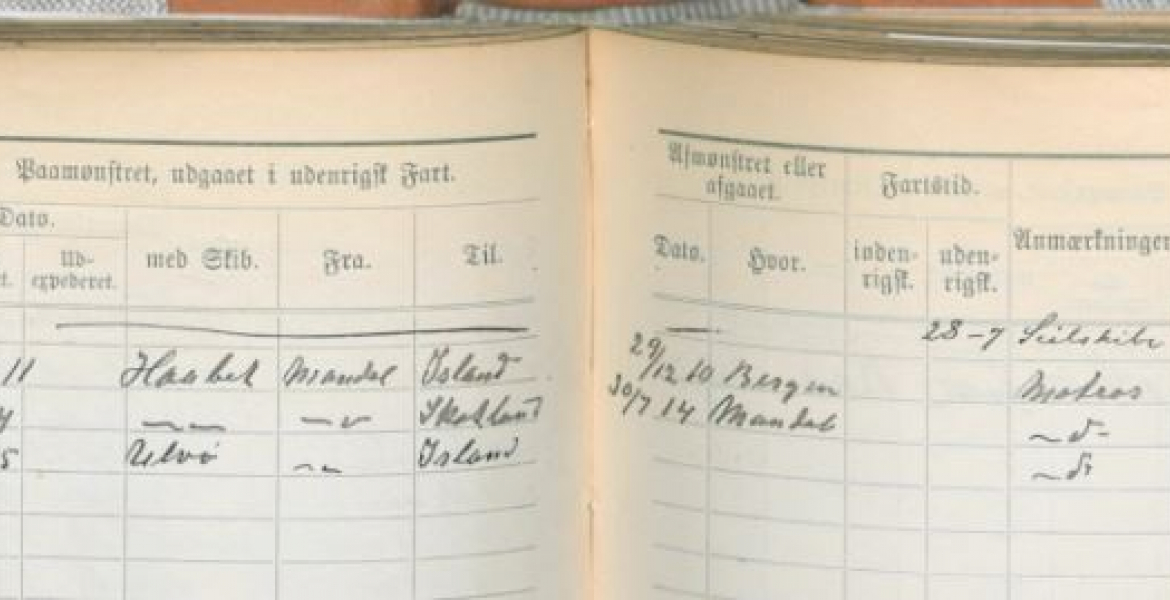 Paamønstret, udgaaet i udenrigsk Fart.
Dato.
Ud-
expederet.
med Skib.
Fra.
Til.
11 Haabet Mandal Island
Skotland
Island
Afmønstret eller
afgaaet.
Fartstid.
Dato.
Hvor.
inden-
rigsk.
uden-
rigsk.
Anmærkninger
28-7
29/12 10 Bergen Matros
30/7 14 Mandal